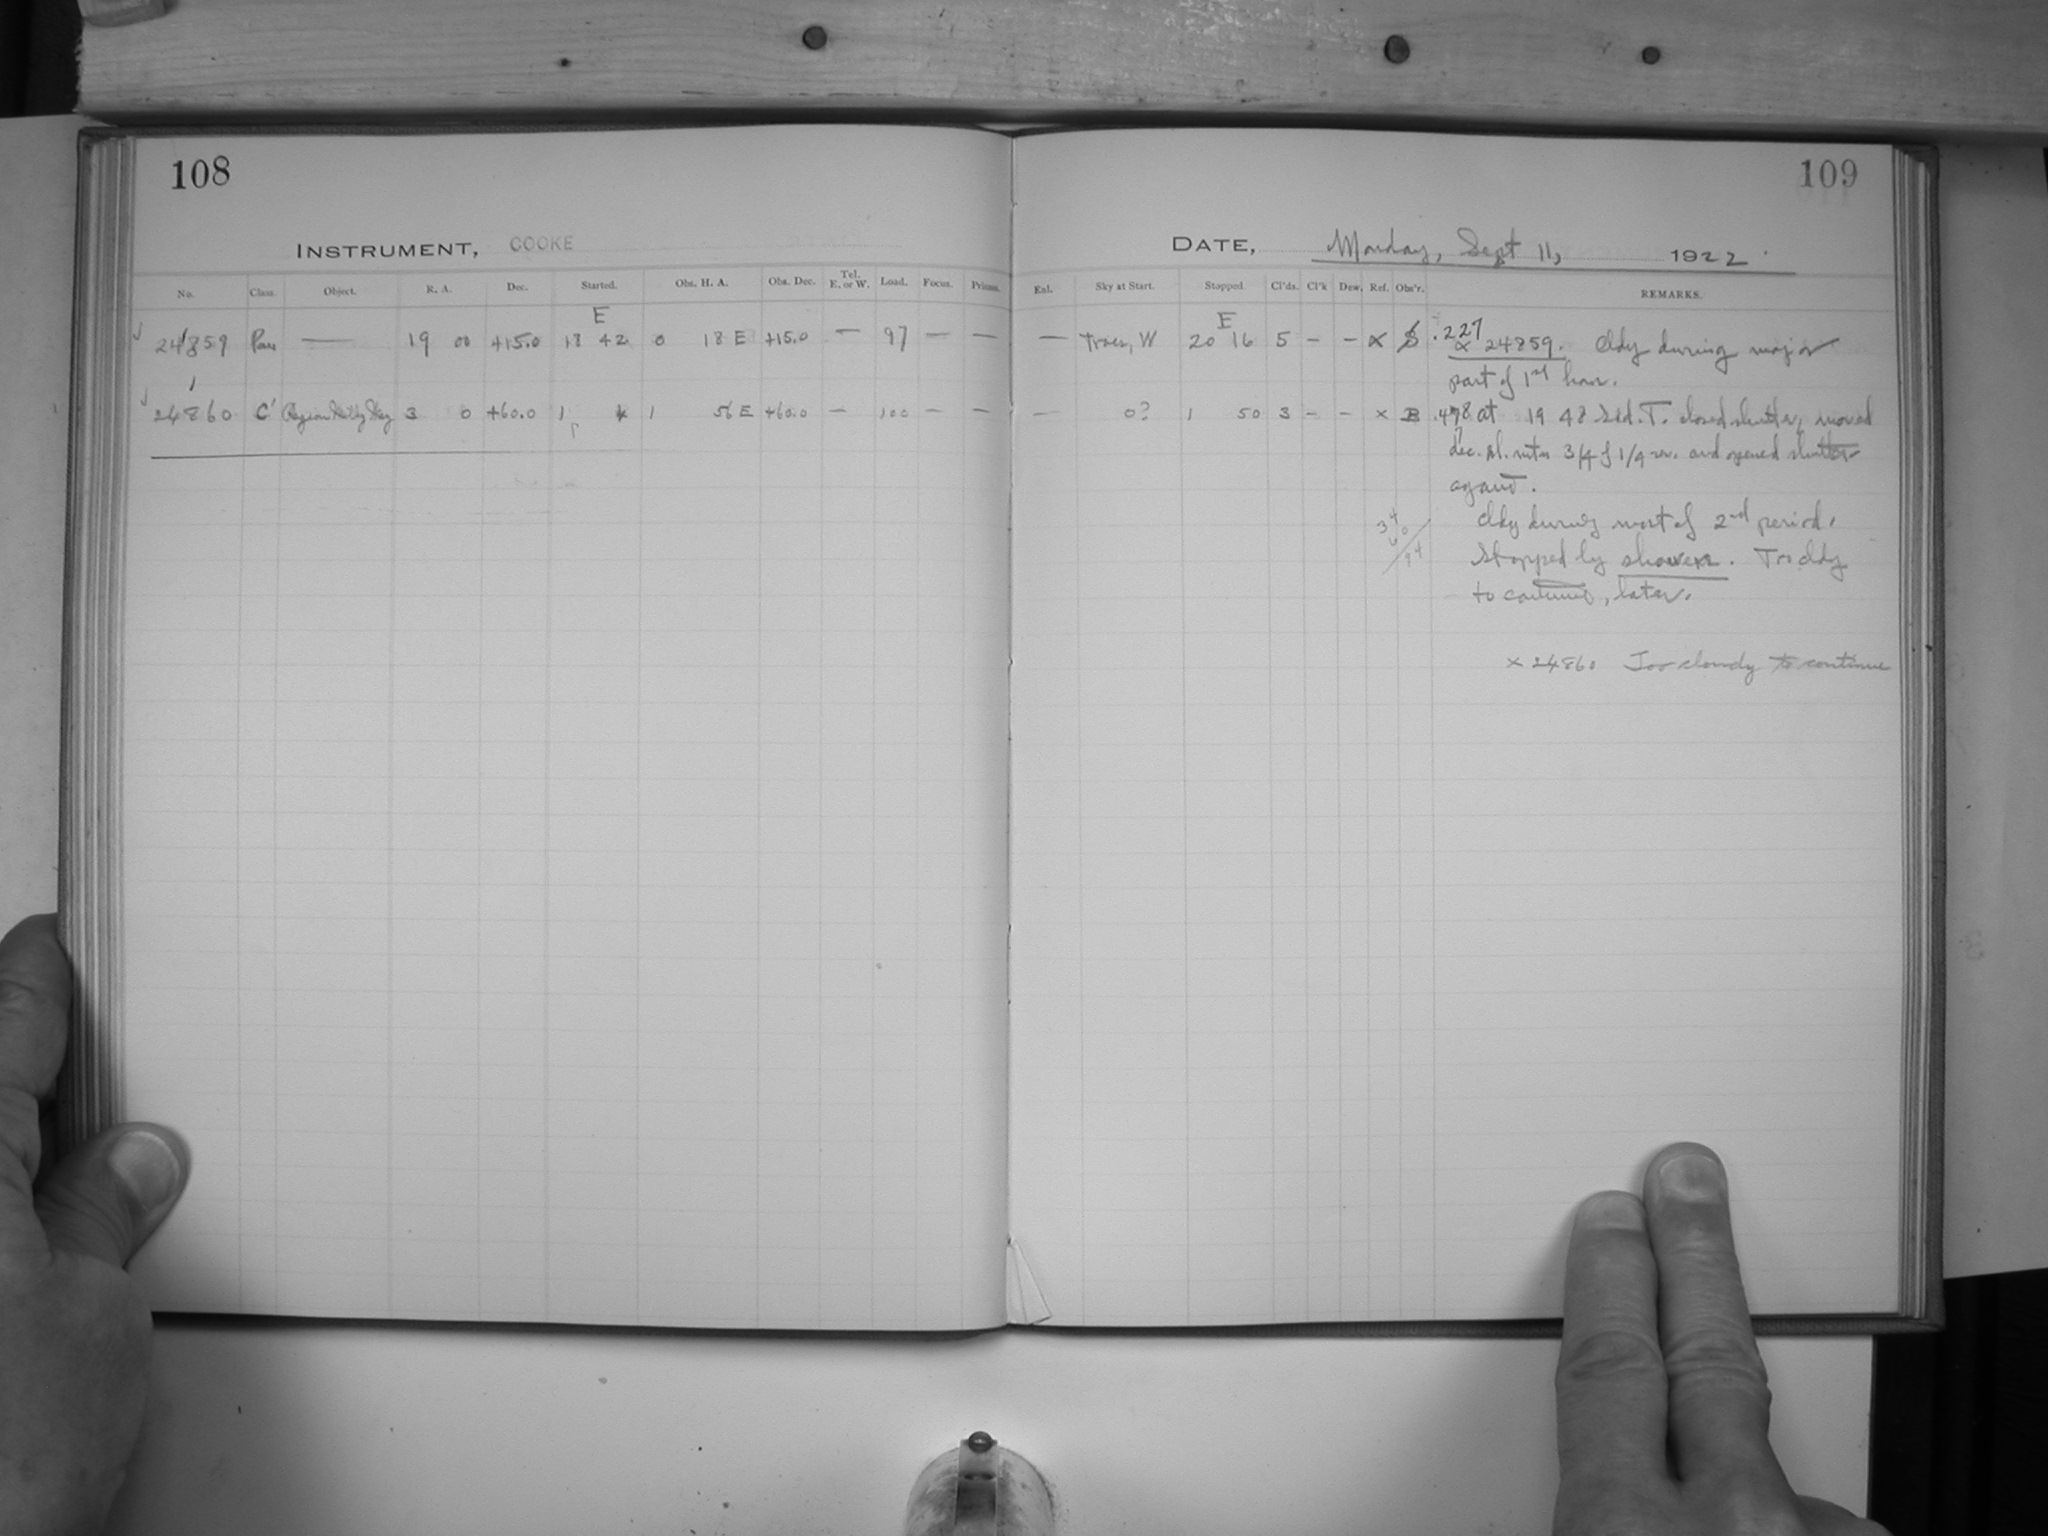 108
109
INSTRUMENT, COOKE
DATE, Monday, Sept 11, 1922.
No. Class. Object. R. A. Dec. Started. Obs. H. A. Obs. Dec. Tel. E. or W. Load. Focus. Prisms.
Enl. Sky at Start. Stopped Cl'ds. Cl'k Dew. Ref. Obs'r. REMARKS.
E
E
24859 19 00 +15.0 18 42 0 18 E +15.0 — 97 — —
— Traces, W 20 16 5 - - x .227 x 24859. Cldy during major
part of 1st hour.
24860 C' Region Milky Way 3 0 +60.0 1 1 56 E +60.0 — 100 — —
— 0? 1 50 3 - - x B .478 at 19 48 Sid. T. closed shutter, moved
dec. sl. 3/4 of 1/4 rev. and opened shutter
again.
Cldy during most of 2nd period.
Stopped by showers. Too cldy
to continue, later.
x 24860 Too cloudy to continue